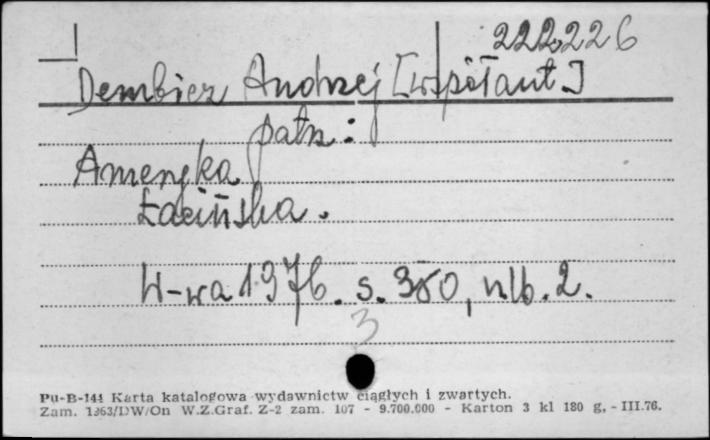 222,226
Dembicz Andrzej [współaut.]
patrz:
Ameryka
Łacińska.
W-wa 1976. s. 380, nlb. 2.
3
Pu-B-144 Karta katalogowa wydawnictw ciągłych i zwartych.
Zam. 1363/DW/On W.Z.Graf. Z-2 zam. 107 - 9.700.000 - Karton 3 kl 180 g. - III.76.